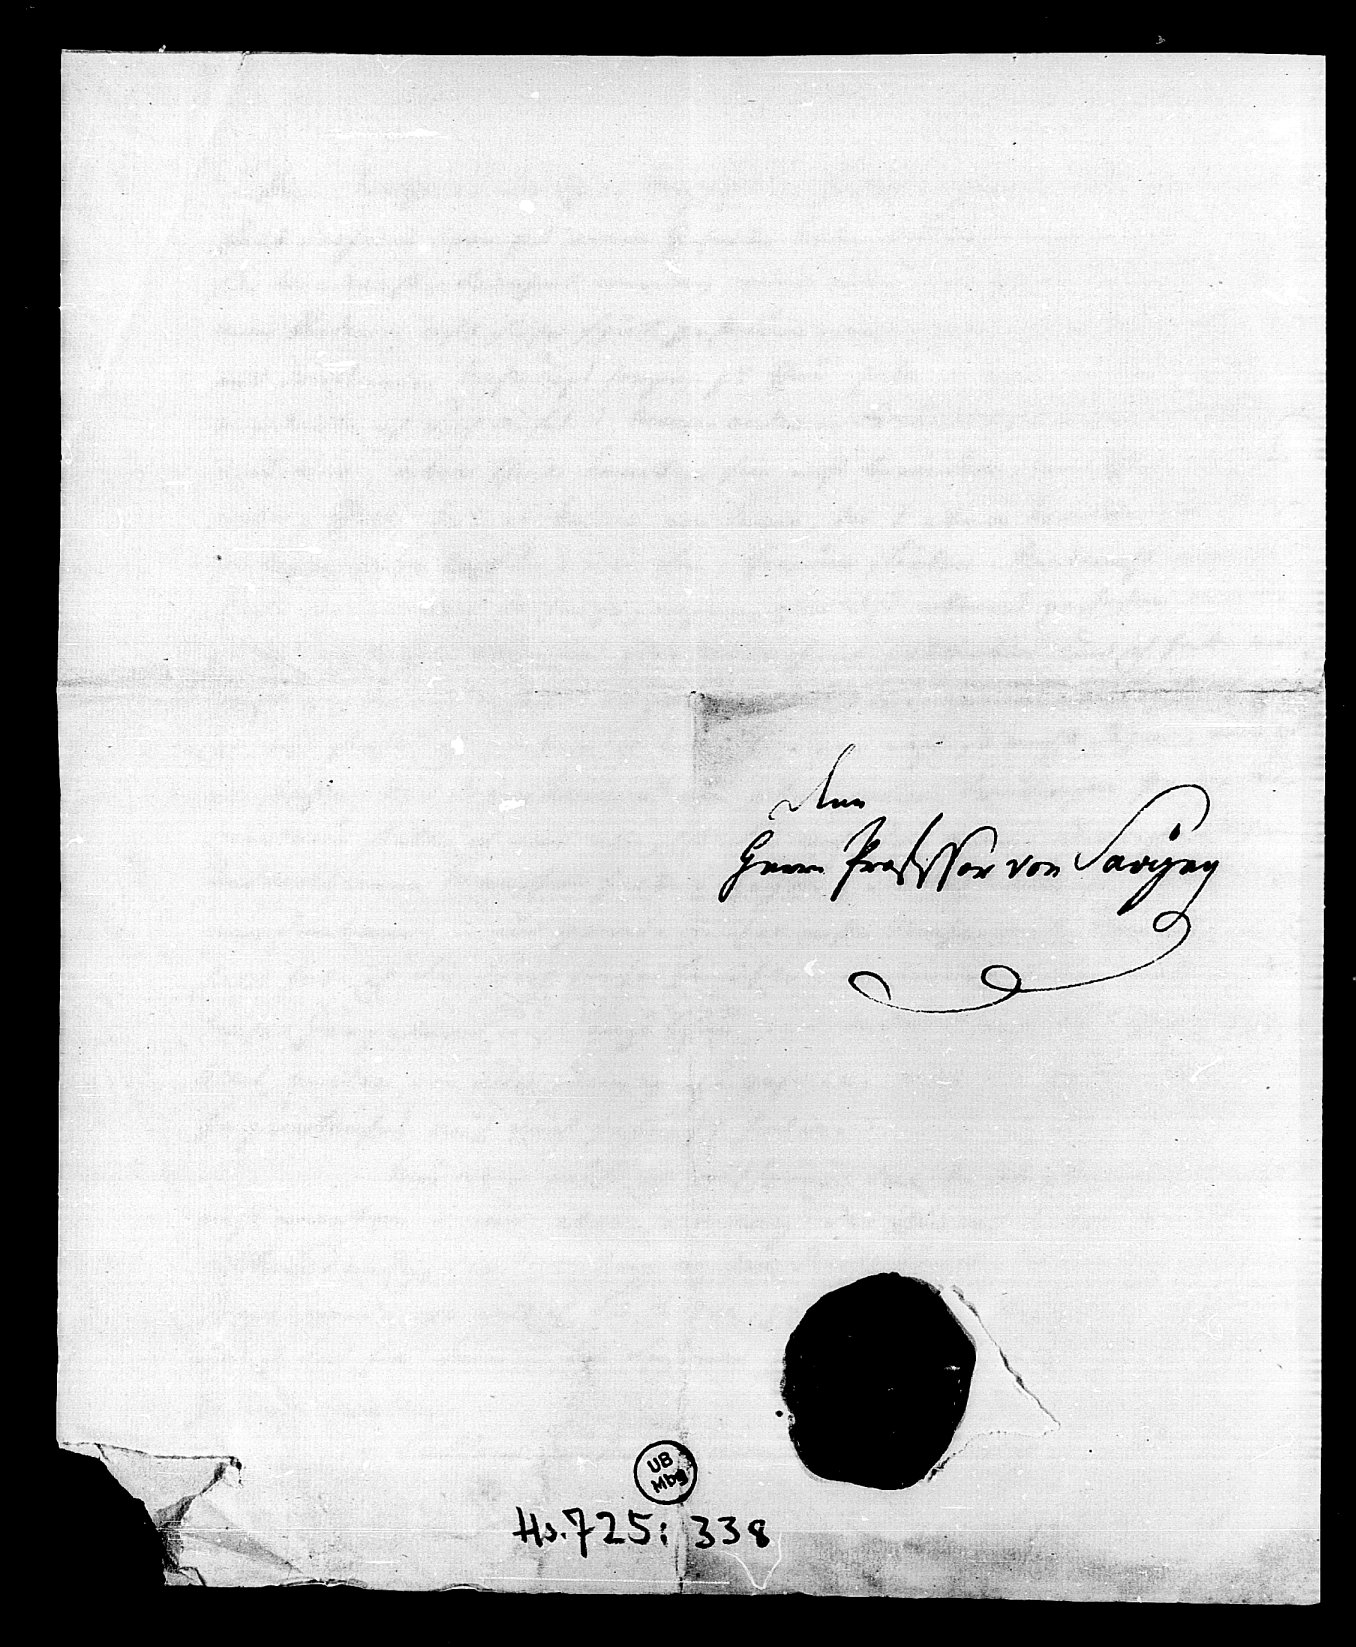 Dem
Herrn Professor von Savigny
UB
Mbg
Hs. 725: 338